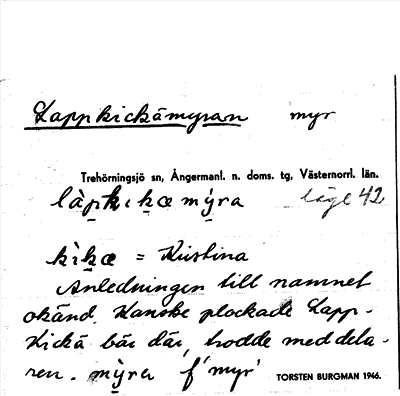 Lappkickämyran myr
Trehörningsjö sn, Ångermanl. n. doms. tg, Västernorrl. län.
làpkıkæmy̆ra läge 42
kìkæ = Kristina
Anledningen till namnet
okänd. Kanske plockade Lapp-
Kickä bär där, trodde meddela-
ren. mỳra f 'myr'
TORSTEN BURGMAN 1946.